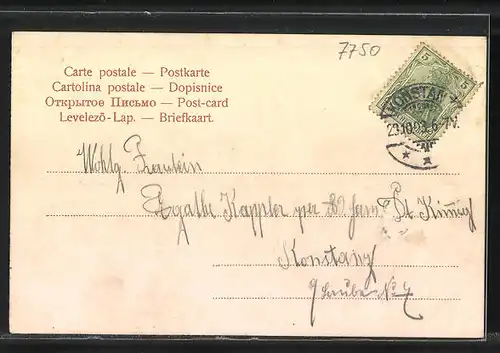 7750
Carte postale — Postkarte
Cartolina postale — Dopisnice
Открытое Письмо — Post-card
Levelező-Lap. — Briefkaart.
5 5
KONSTANZ
Wohlg. Fraulein
Agathe Kappler per
Konstanz
Laube No 7